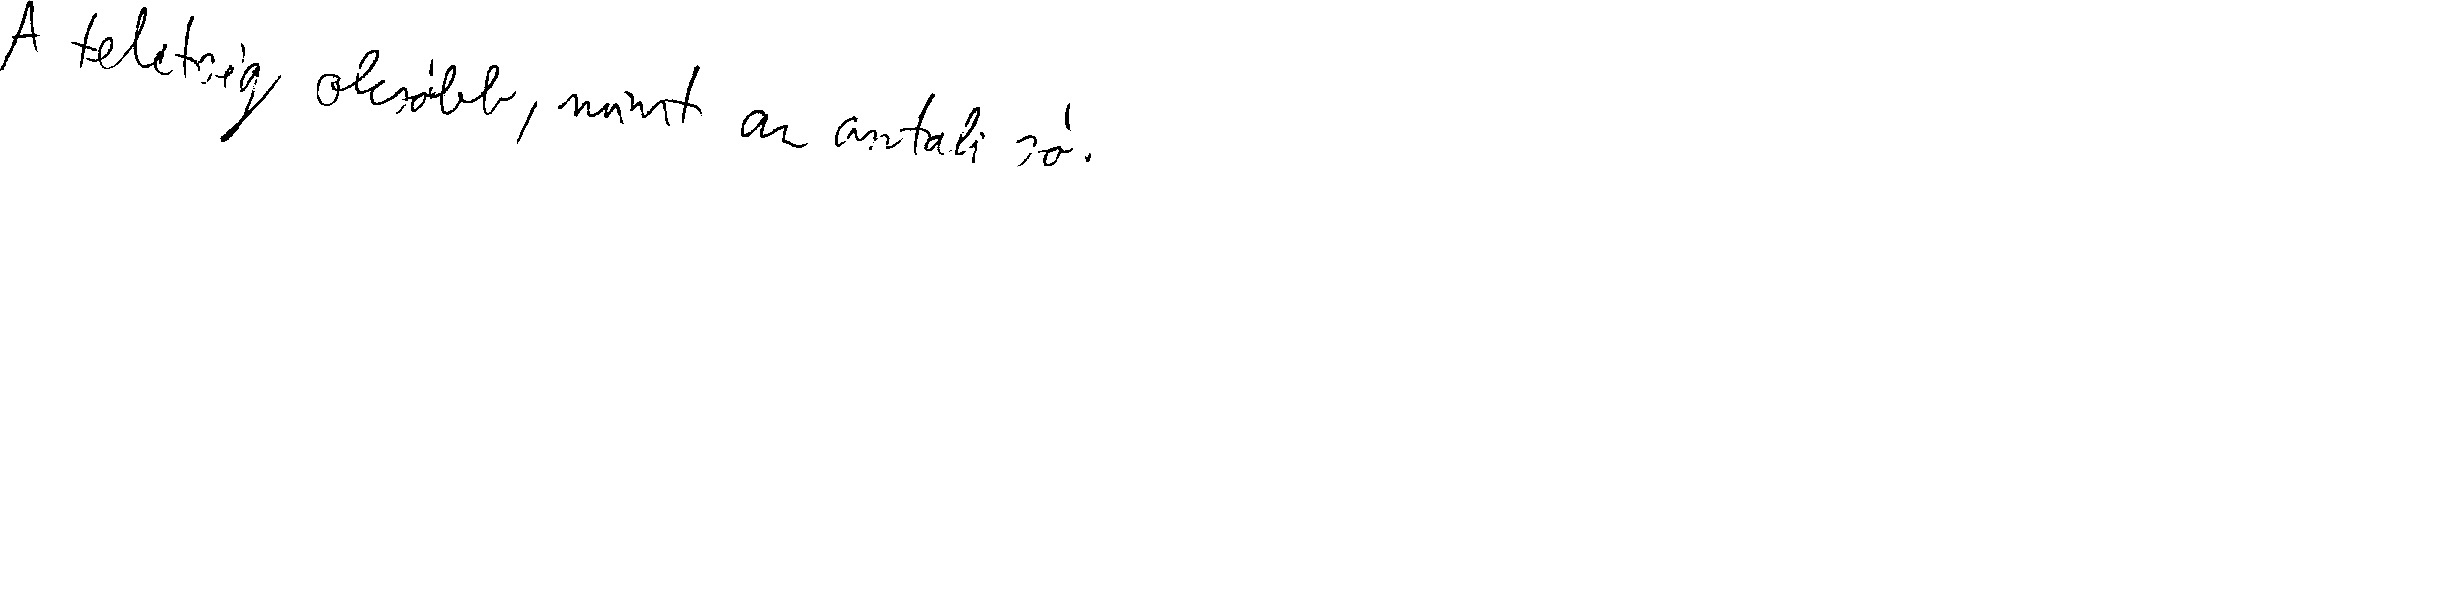 A teletség olcsóbb, mint az asztali só.